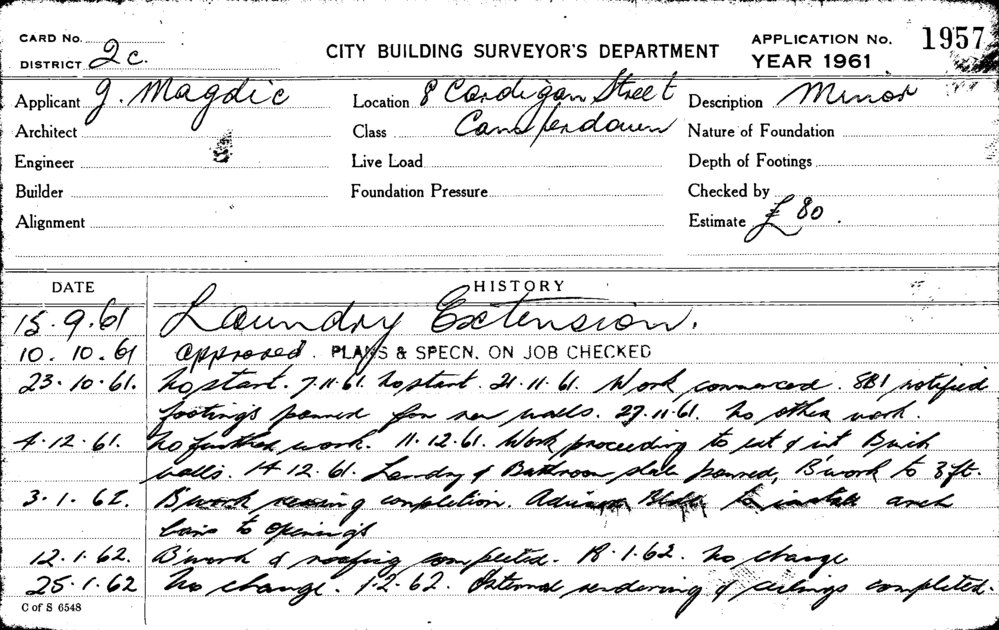 CARD No.
DISTRICT 2c.
CITY BUILDING SURVEYOR'S DEPARTMENT
APPLICATION No. 1957
YEAR 1961
Applicant J. Magdic
Location 8 Cardigan Street
Description Minor
Architect
Class Camperdown
Nature of Foundation
Engineer
Live Load
Depth of Footings
Builder
Foundation Pressure
Checked by
Alignment
Estimate £ 80.
DATE HISTORY
15.9.61 Laundry Extension.
10.10.61 approved. PLANS & SPECN. ON JOB CHECKED
23.10.61. No start. 7.11.61. No start. 21.11.61. Work commenced. SBI notified
footings poured for new walls. 27.11.61. No other work.
4.12.61. No further work. 11.12.61. Work proceeding to ext & int Brick
walls. 14.12.61. Laundry & Bathroom slab poured, B'work to 3ft.
3.1.62. B'work nearing completion. Advised Bldr to install arch
bars to openings
12.1.62. B'work & roofing completed. 18.1.62. No change
25.1.62 No change. 1.2.62. Internal rendering & ceilings completed.
C of S 6548